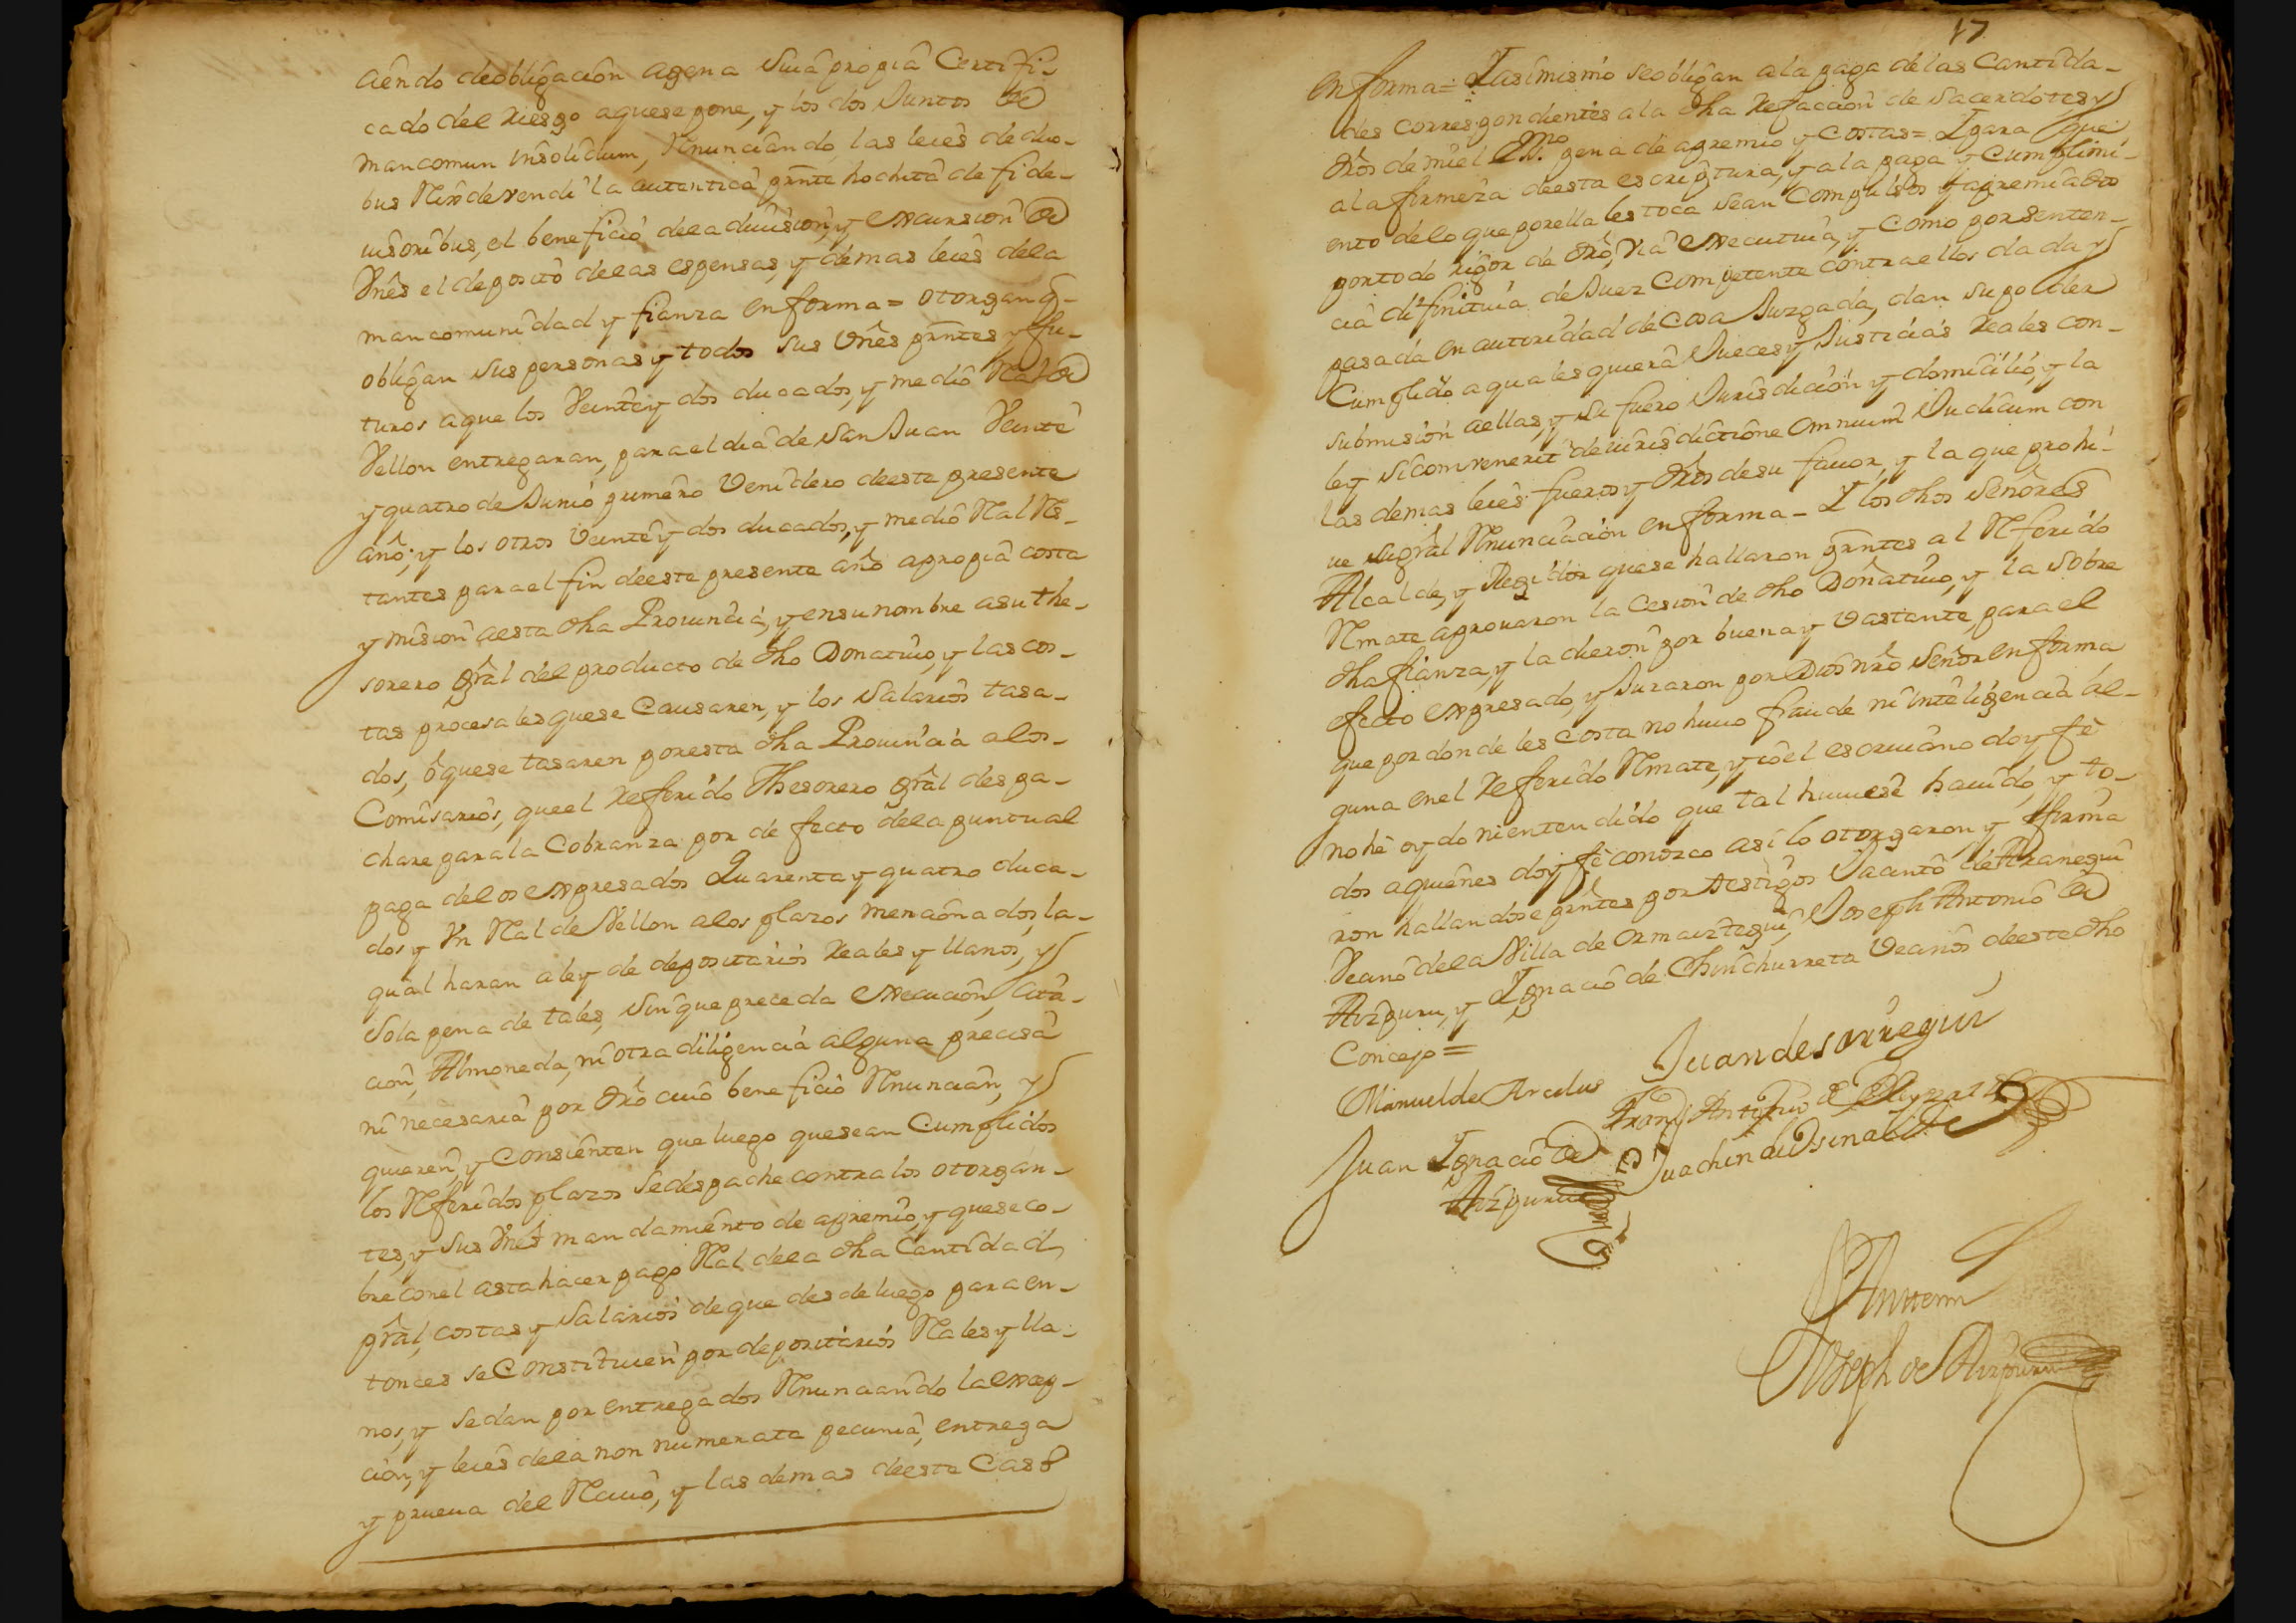 aiendo de obligacion agena suia propia Certifi-
cado del riesgo aquese pone, y los dos Juntos de
mancomun insolidum, Rnunciando las leies de duo-
bus Reis devendi la autentica prnte hochita de fide-
iusoribus, el beneficio dela diuision, y excursion de
Vnes el deposito delas espensas, y demas leies dela
mancomunidad y fianza en forma = otorgan q-
obligan sus personas y todos sus Vnes prntes y fu-
turos aque los Veinte y dos ducados, y medio Ral de
Vellon entregaran, para el dia de San Juan Veinte
y quatro de Junio primero Venidero deeste presente
año; y los otros veinte y dos ducados, y medio Ral Rs-
tantes para el fin deeste presente año apropia costa
y mision aesta dha Prouincia, y ensu nombre asu the-
sorero gral del producto de dho Donatiuo, y las cos-
tas procesales quese Causaren, y los Salarios tasa-
dos, o quese tasaren poresta dha Prouincia alos-
Comisarios, que el referido Thesorero gral despa-
chare para la Cobranza por defecto dela puntual
paga delos expresados Quarenta y quatro duca-
dos y Vn Ral de Vellon alos plazos mencionados, la-
qual haran a ley de depositarios reales y llanos, y
Sola pena de tales, sin que preceda execucion, cita-
cion, Almoneda, ni otra diligencia alguna precisa
ni necesaria por dro cuio beneficio Rnuncian, y
quieren, y Consienten que luego quesean Cumplidos
los Rferidos plazos sedespache contralos otorgan-
tes, y sus Vnes mandamiento de apremio, y queseco-
bre conel asta hacer pago Ral dela dha Cantidad
pral, costas y Salarios deque desde luego para en-
tonces se Constituien por depositarios Rales y lla-
nos, y sedan por entregados Rnunciando la excep-
cion, y leies dela non numerata pecunia, entrega
y prueua del Rciuo, y las demas deeste Caso
17
en forma = Y asimismo seobligan ala paga delas Cantida-
des correspondientes ala dha refaccion de sacerdotes y
dros de mi el Esno pena de apremio y costas = Y para que
ala firmeza deesta escriptura, y ala paga y cumplimi-
ento delo que porella les toca sean Compulsos y apremiados
portodo rigor de dro, Via executiua, y como por senten-
cia difinitiua de Juez Competente contra ellos dada y
pasada en autoridad de Cosa Juzgada, dan su poder
Cumplido aqualesquiera Jueces y Justicias reales con-
submision aellas, y su fuero Jurisdicion y domicilio, y la
ley sicomvenerit de iurisdictione omnium Judicum con
las demas leies fueros y dros desu fauor, y la que prohi-
ue sugral Rnunciacion en forma - Y los dhos Señores
Alcalde, y Regidor quese hallaron prntes al Rferido
Rmate aprouaron la Cesion de dho Donatiuo, y la sobre
dha fianza, y la dieron por buena y vastante, para el
efecto expresado, y Juraron por Dios nro Señor en forma
que por donde les costa no huuo fraude ni inteligencia al-
guna enel referido Rmate, y io el escriuano doy fe
no he oydo ni entendido que tal huuiese hauido, y to-
dos aquienes doy fe conozco asi lo otorgaron y firma
ron hallandose prntes por testigos Jacinto de Aranegui
Vecino dela Villa de Ormaiztegui, Joseph Antonio de
Aizpuru, y Ygnacio de Chinchurreta Vecinos deeste dho
Concejo =
Juan de sorregui
Manuel de Arcelus
Juan Ygnacio de
Aizpuru
Juachin de Osinalde
Antemi
Joseph de Aizpuru